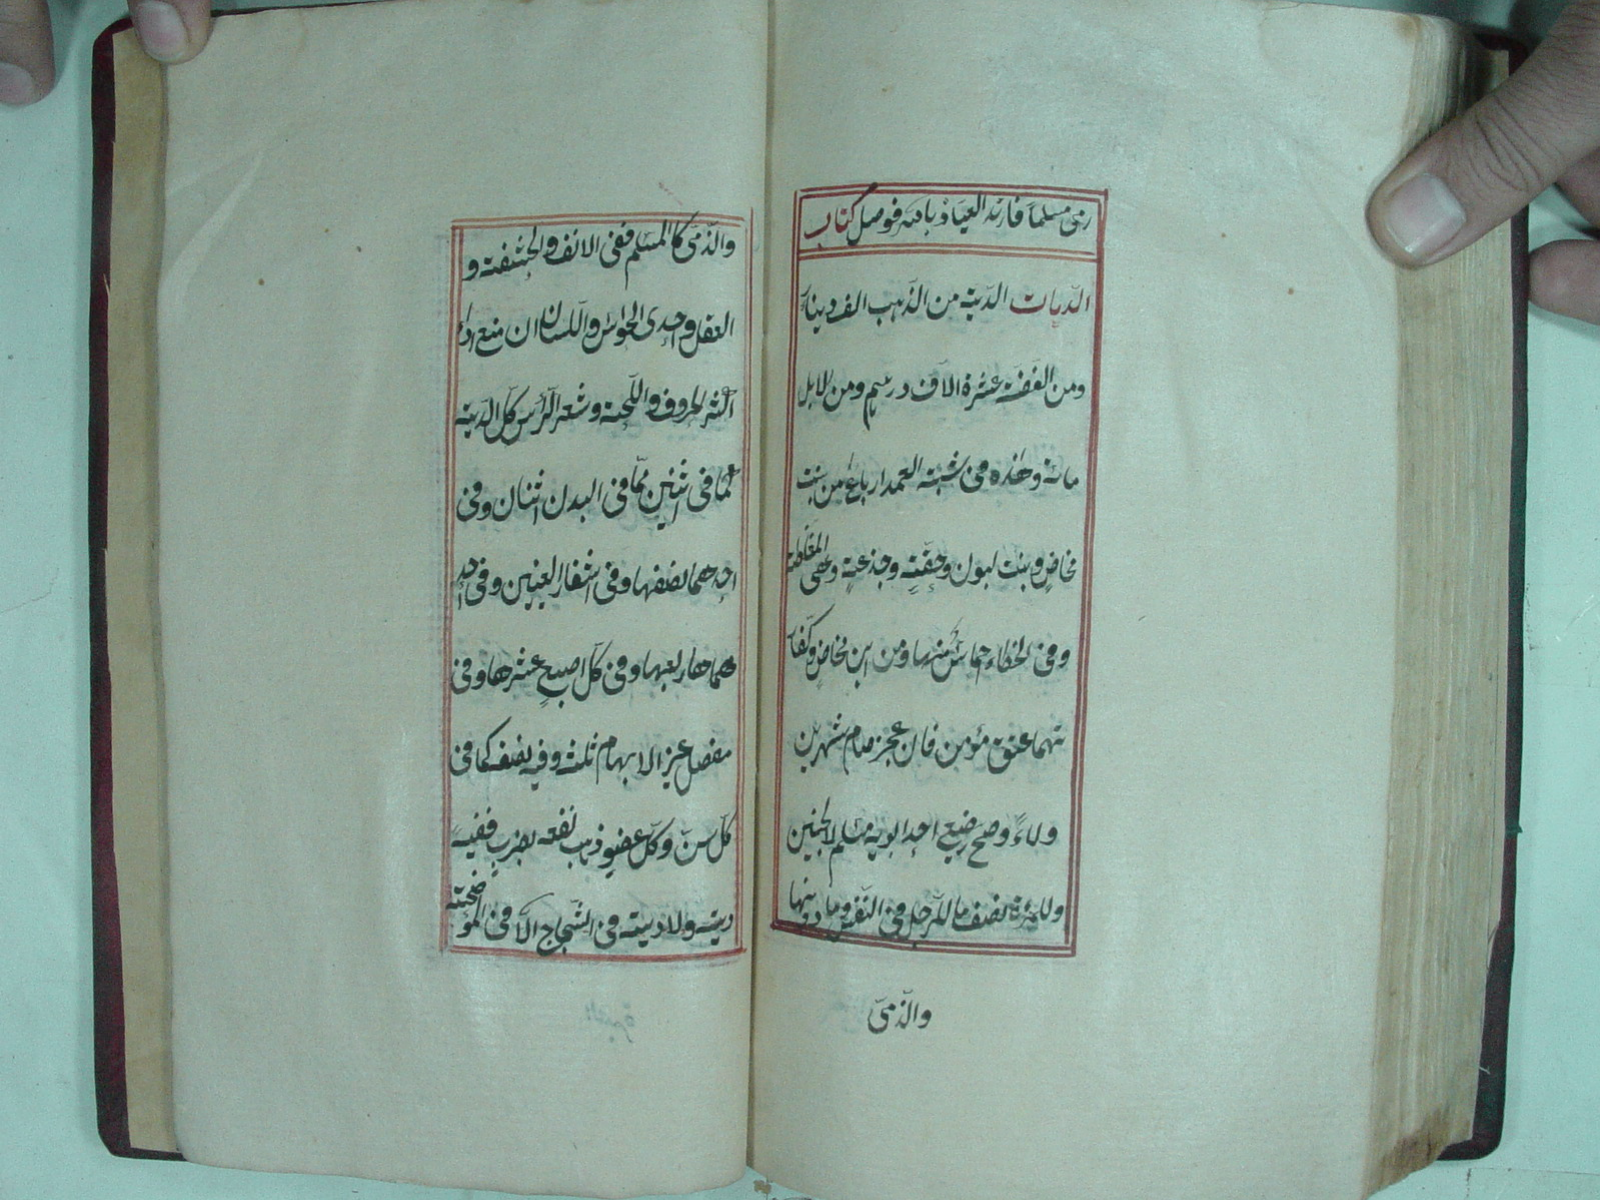 رمى مسلما فارتد العياذ بالله فوصل كتاب
الدّيات الدّية من الذّهب الف دينار
ومن الفضة عشرة الاف درهم ومن الابل
مائة وهذه فى شبه العمد ارباع من بنت
مخاض وبنت لبون وحقّة وجذعة وهى المغلظة
وفى الخطاء اخماس منها ومن ابن مخاض وكفار
تهما عتق مؤمن فان عجز صام شهرين
ولاءً وصح رضيع احد ابويه مسلم لا الجنين
وللمرءة نصف ما للرجل فى النّفس وما دونها
والذّمىّ
والذّمىّ كالمسلم ففى الانف والحشفة و
العقل واحدى الحواسّ واللّسان ان منع اداء
اكثر الحروف واللّحية وشعر الرّأس كلّ الدّية
كما فى اثنين ممّا فى البدن اثنان وفى
احدهما نصفها وفى اشفار العينين وفى احد
هما ربعها وفى كلّ اصبع عشرها وفى
مفصل غير الابهام ثلثه وفيه نصفه كما فى
كلّ سنّ وكلّ عضو ذهب نفعه بضرب ففيه
دية ولا دية فى الشّجاج الّا فى الموضحة